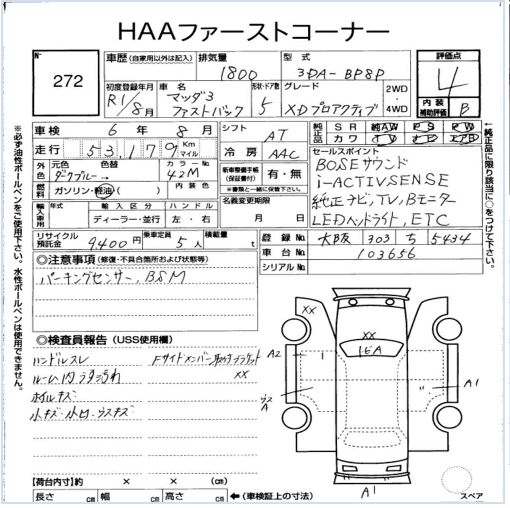 HAAファーストコーナー
272
車歴 (自家用以外は記入) 排気量 型式 評価点
1800 3DA-BP8P 4
初度登録年月 車名 形状・ドア数 グレード 2WD・4WD 内装補助評価 B
R1/8月 マツダ3 ファストバック 5 XDプロアクティブ
車検 6年8月 シフト AT 純正品 SR AW PS PW
走行 53,179 Km マイル 冷房 AAC カワ
外色 元色 色替 カラーNo. 新車整備手帳(保証書付) 有・無 セールスポイント
ダークブルー 42M ※書類と一緒に提出して下さい。 BOSEサウンド
燃料 ガソリン・軽油・( ) 内装色 名義変更期限 i-ACTIVSENSE
輸入車 年式 輸入区分 ハンドル 月 日 純正ナビ,TV,Bモニター
ディーラー・並行 左・右 LEDヘッドライト,ETC
リサイクル預託金 9400円 乗車定員 5人 積載量 t 登録No. 大阪 303 ち 5434
車台No. 103656
シリアルNo.
◎注意事項 (修復・不具合箇所および状態等)
パーキングセンサー, BSM
◎検査員報告 (USS使用欄)
ハンドルスレ Fサイドメンバー取付ブラケット
XX
ルーム内
ホイルキズ
小キズ・小凹・ウスキズ
XX
XX
A2
A1
ウスA
A1
【荷台内寸】約 × × (cm)
長さ cm 幅 cm 高さ cm ←(車検証上の寸法)
スペア
※必ず油性ボールペンをご使用下さい。水性ボールペンは使用できません。
←純正品に限り該当に○をつけて下さい。